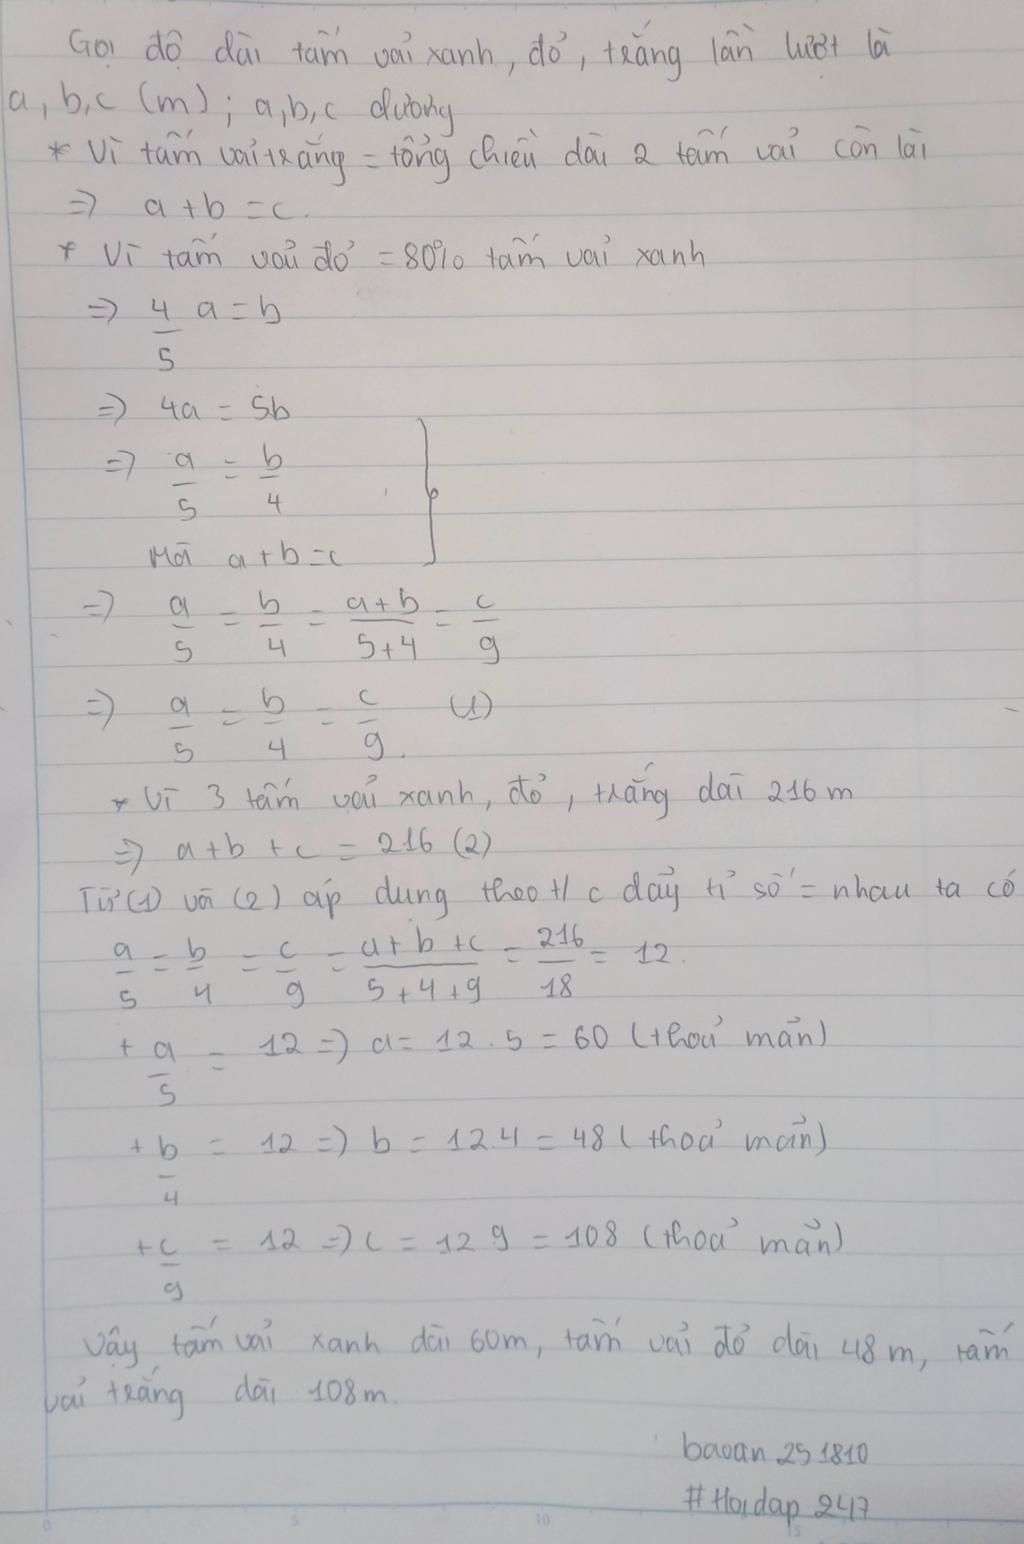 Gọi độ dài tấm vải xanh, đỏ, trắng lần lượt là
a, b, c (m); a, b, c dương
* Vì tấm vải trắng = tổng chiều dài 2 tấm vải còn lài
=> a + b = c.
* Vì tấm vải đỏ = 80% tấm vải xanh
=> 4/5 a = b
=> 4a = 5b
=> a/5 = b/4
Mà a + b = c
=> a/5 = b/4 = (a + b)/(5 + 4) = c/9
=> a/5 = b/4 = c/9. (1)
* Vì 3 tấm vải xanh, đỏ, trắng dài 216 m
=> a + b + c = 216 (2)
Từ (1) và (2) áp dung theo t/c dãy tỉ số = nhau ta có
a/5 = b/4 = c/9 = (a + b + c)/(5 + 4 + 9) = 216/18 = 12.
+ a/5 = 12 => a = 12 . 5 = 60 (thoả mãn)
+ b/4 = 12 => b = 12.4 = 48 (thoả mãn)
+ c/9 = 12 => c = 12 9 = 108 (thoả mãn)
Vậy tấm vải xanh dài 60m, tấm vải đỏ dài 48 m, tấm
vải trắng dài 108m.
baoan 251810
#Hoidap 247
0 5 10 15